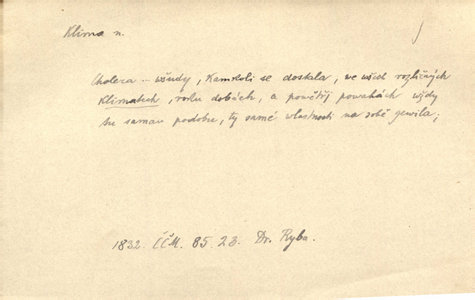 Klima n.
Cholera – wšudy, kamkoli se dostala, we wšech rozličných
klimatech, roku dobách, a powětřj powahách wždy
tu samau podobu, ty samé wlastnosti na sobě gewila;
1832. ČČM. 85.23. Dr. Ryba.